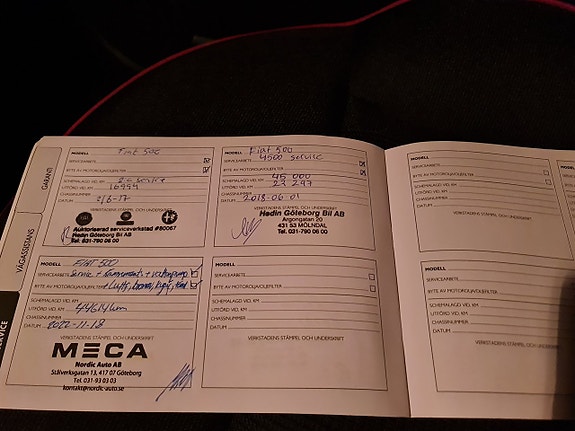 GARANTI
VÄGASSISTANS
SERVICE
MODELL Fiat 500
SERVICEARBETE
BYTE AV MOTOROLJA/OLJEFILTER
SCHEMALAGD VID, KM service
UTFÖRD VID, KM 16994
CHASSINUMMER
DATUM 2/6-17
VERKSTADENS STÄMPEL OCH UNDERSKRIFT
Auktoriserad serviceverkstad #60067
Hedin Göteborg Bil AB
Tel. 031-790 06 00
MODELL Fiat 500
SERVICEARBETE 4500 service
BYTE AV MOTOROLJA/OLJEFILTER
SCHEMALAGD VID, KM 45 000
UTFÖRD VID, KM 23 297
CHASSINUMMER
DATUM 2018-06-01
VERKSTADENS STÄMPEL OCH UNDERSKRIFT
Hedin Göteborg Bil AB
Argongatan 20
431 53 MÖLNDAL
Tel. 031-790 06 00
MODELL FIAT 500
SERVICEARBETE Service + kamrem +
BYTE AV MOTOROLJA/OLJEFILTER + Luft,
SCHEMALAGD VID, KM
UTFÖRD VID, KM 44614 km
CHASSINUMMER
DATUM 2022-11-18
VERKSTADENS STÄMPEL OCH UNDERSKRIFT
MECA
Nordic Auto AB
Stålverksgatan 13, 417 07 Göteborg
Tel. 031-93 03 03
kontakt@nordic-auto.se
MODELL
SERVICEARBETE
BYTE AV MOTOROLJA/OLJEFILTER
SCHEMALAGD VID, KM
UTFÖRD VID, KM
CHASSINUMMER
DATUM
VERKSTADENS STÄMPEL OCH UNDERSKRIFT
MODELL
SERVICEARBETE
BYTE AV MOTOROLJA/OLJEFILTER
SCHEMALAGD VID, KM
UTFÖRD VID, KM
CHASSINUMMER
DATUM
VERKSTADENS STÄMPEL OCH UNDERSKRIFT
MODELL
SERVICEARBETE
BYTE AV MOTOROLJA/OLJEFILTER
SCHEMALAGD VID, KM
UTFÖRD VID, KM
CHASSINUMMER
DATUM
VERKSTADENS STÄMPEL OCH UNDERSKRIFT